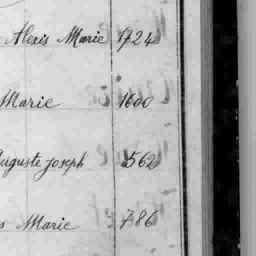 Alexis Marie 1724
Marie 1600
Auguste Joseph 1562
s Marie 786